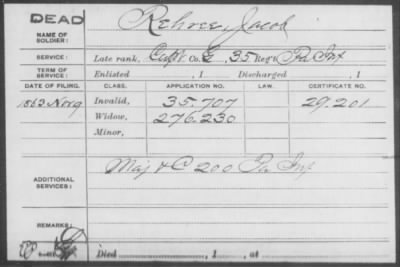 DEAD
NAME OF SOLDIER: Rehrer, Jacob
SERVICE: Late rank, Capt. Co. E, 35 Reg't Pa Inf
TERM OF SERVICE: Enlisted , 1 Discharged , 1
DATE OF FILING. CLASS. APPLICATION NO. LAW. CERTIFICATE NO.
1863 Nov 9 Invalid, 35.707 29.201
Widow, 276.230
Minor,
ADDITIONAL SERVICES: Maj & C 200 Pa Inf
REMARKS:
Died , 1 , at